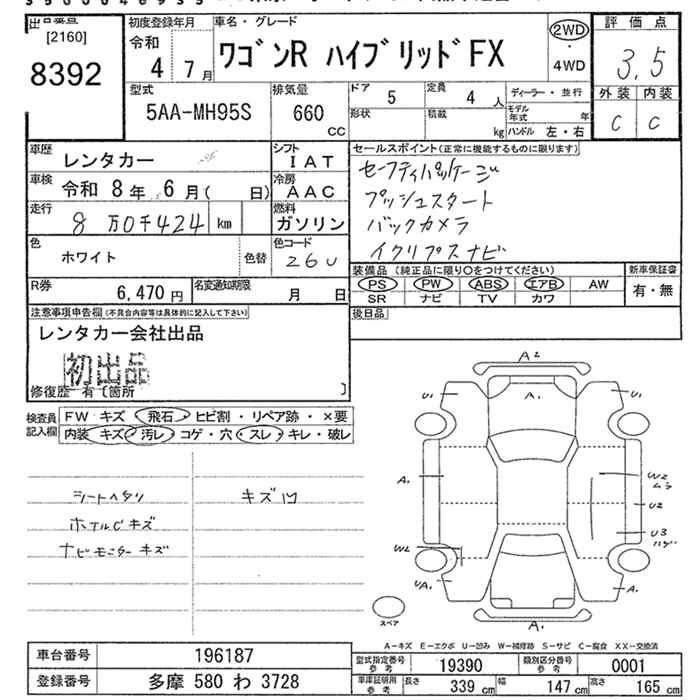 [2160]
8392
初度登録年月
令和
4 年 7 月
車名・グレード
ワゴンR ハイブリッドFX
2WD
・
4WD
評価点
3.5
外装 内装
C C
型式
5AA-MH95S
排気量
660
CC
ドア 5
定員 4 人
形状
積載 kg
ディーラー・並行
モデル年式 年
ハンドル 左・右
車歴 レンタカー
シフト
IAT
車検 令和 8年 6月( 日)
冷房
AAC
走行 8万0千424 km
燃料
ガソリン
色 ホワイト 色替
色コード
26U
R券 6,470円
名変通知期限 月 日
セールスポイント(正常に機能するものに限ります)
セーフティパッケージ
プッシュスタート
バックカメラ
イクリプスナビ
装備品 (純正品に限り○をつけてください)
新車保証書
PS PW ABS エアB AW
有・無
SR ナビ TV カワ
後日品
注意事項申告欄(不具合内容等は具体的に記入して下さい)
レンタカー会社出品
初出品
修復歴 有〔箇所 〕
検査員
記入欄
FW キズ・飛石・ヒビ割・リペア跡・×要
内装 キズ・汚レ・コゲ・穴・スレ・キレ・破レ
シートヘタリ
キズ凹
ホイルCキズ
ナビモニターキズ
A2
U1
A.
U1
A.
W2
ムラ
U2
U3
ハゲ
W2
UA.
A.
A.
スペア
A-キズ E-エクボ U-凹み W-補修跡 S-サビ C-腐食 XX-交換済
車台番号 196187
登録番号 多摩 580 わ 3728
型式指定番号
参考
19390
類別区分番号
参考
0001
車庫証明用
参考
長さ 339 cm
幅 147 cm
高さ 165 cm